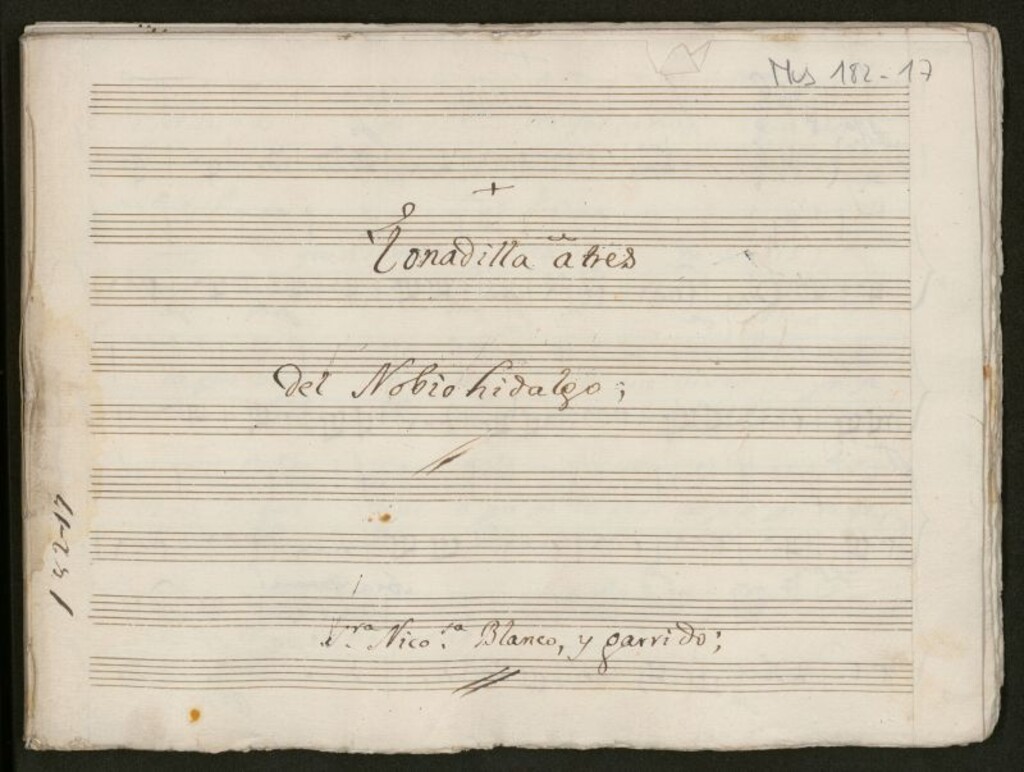 Mus 182-17
+
Tonadilla a tres
del Nobio hidalgo;
S.ra Nico.sa Blanco, y garrido;
182-17